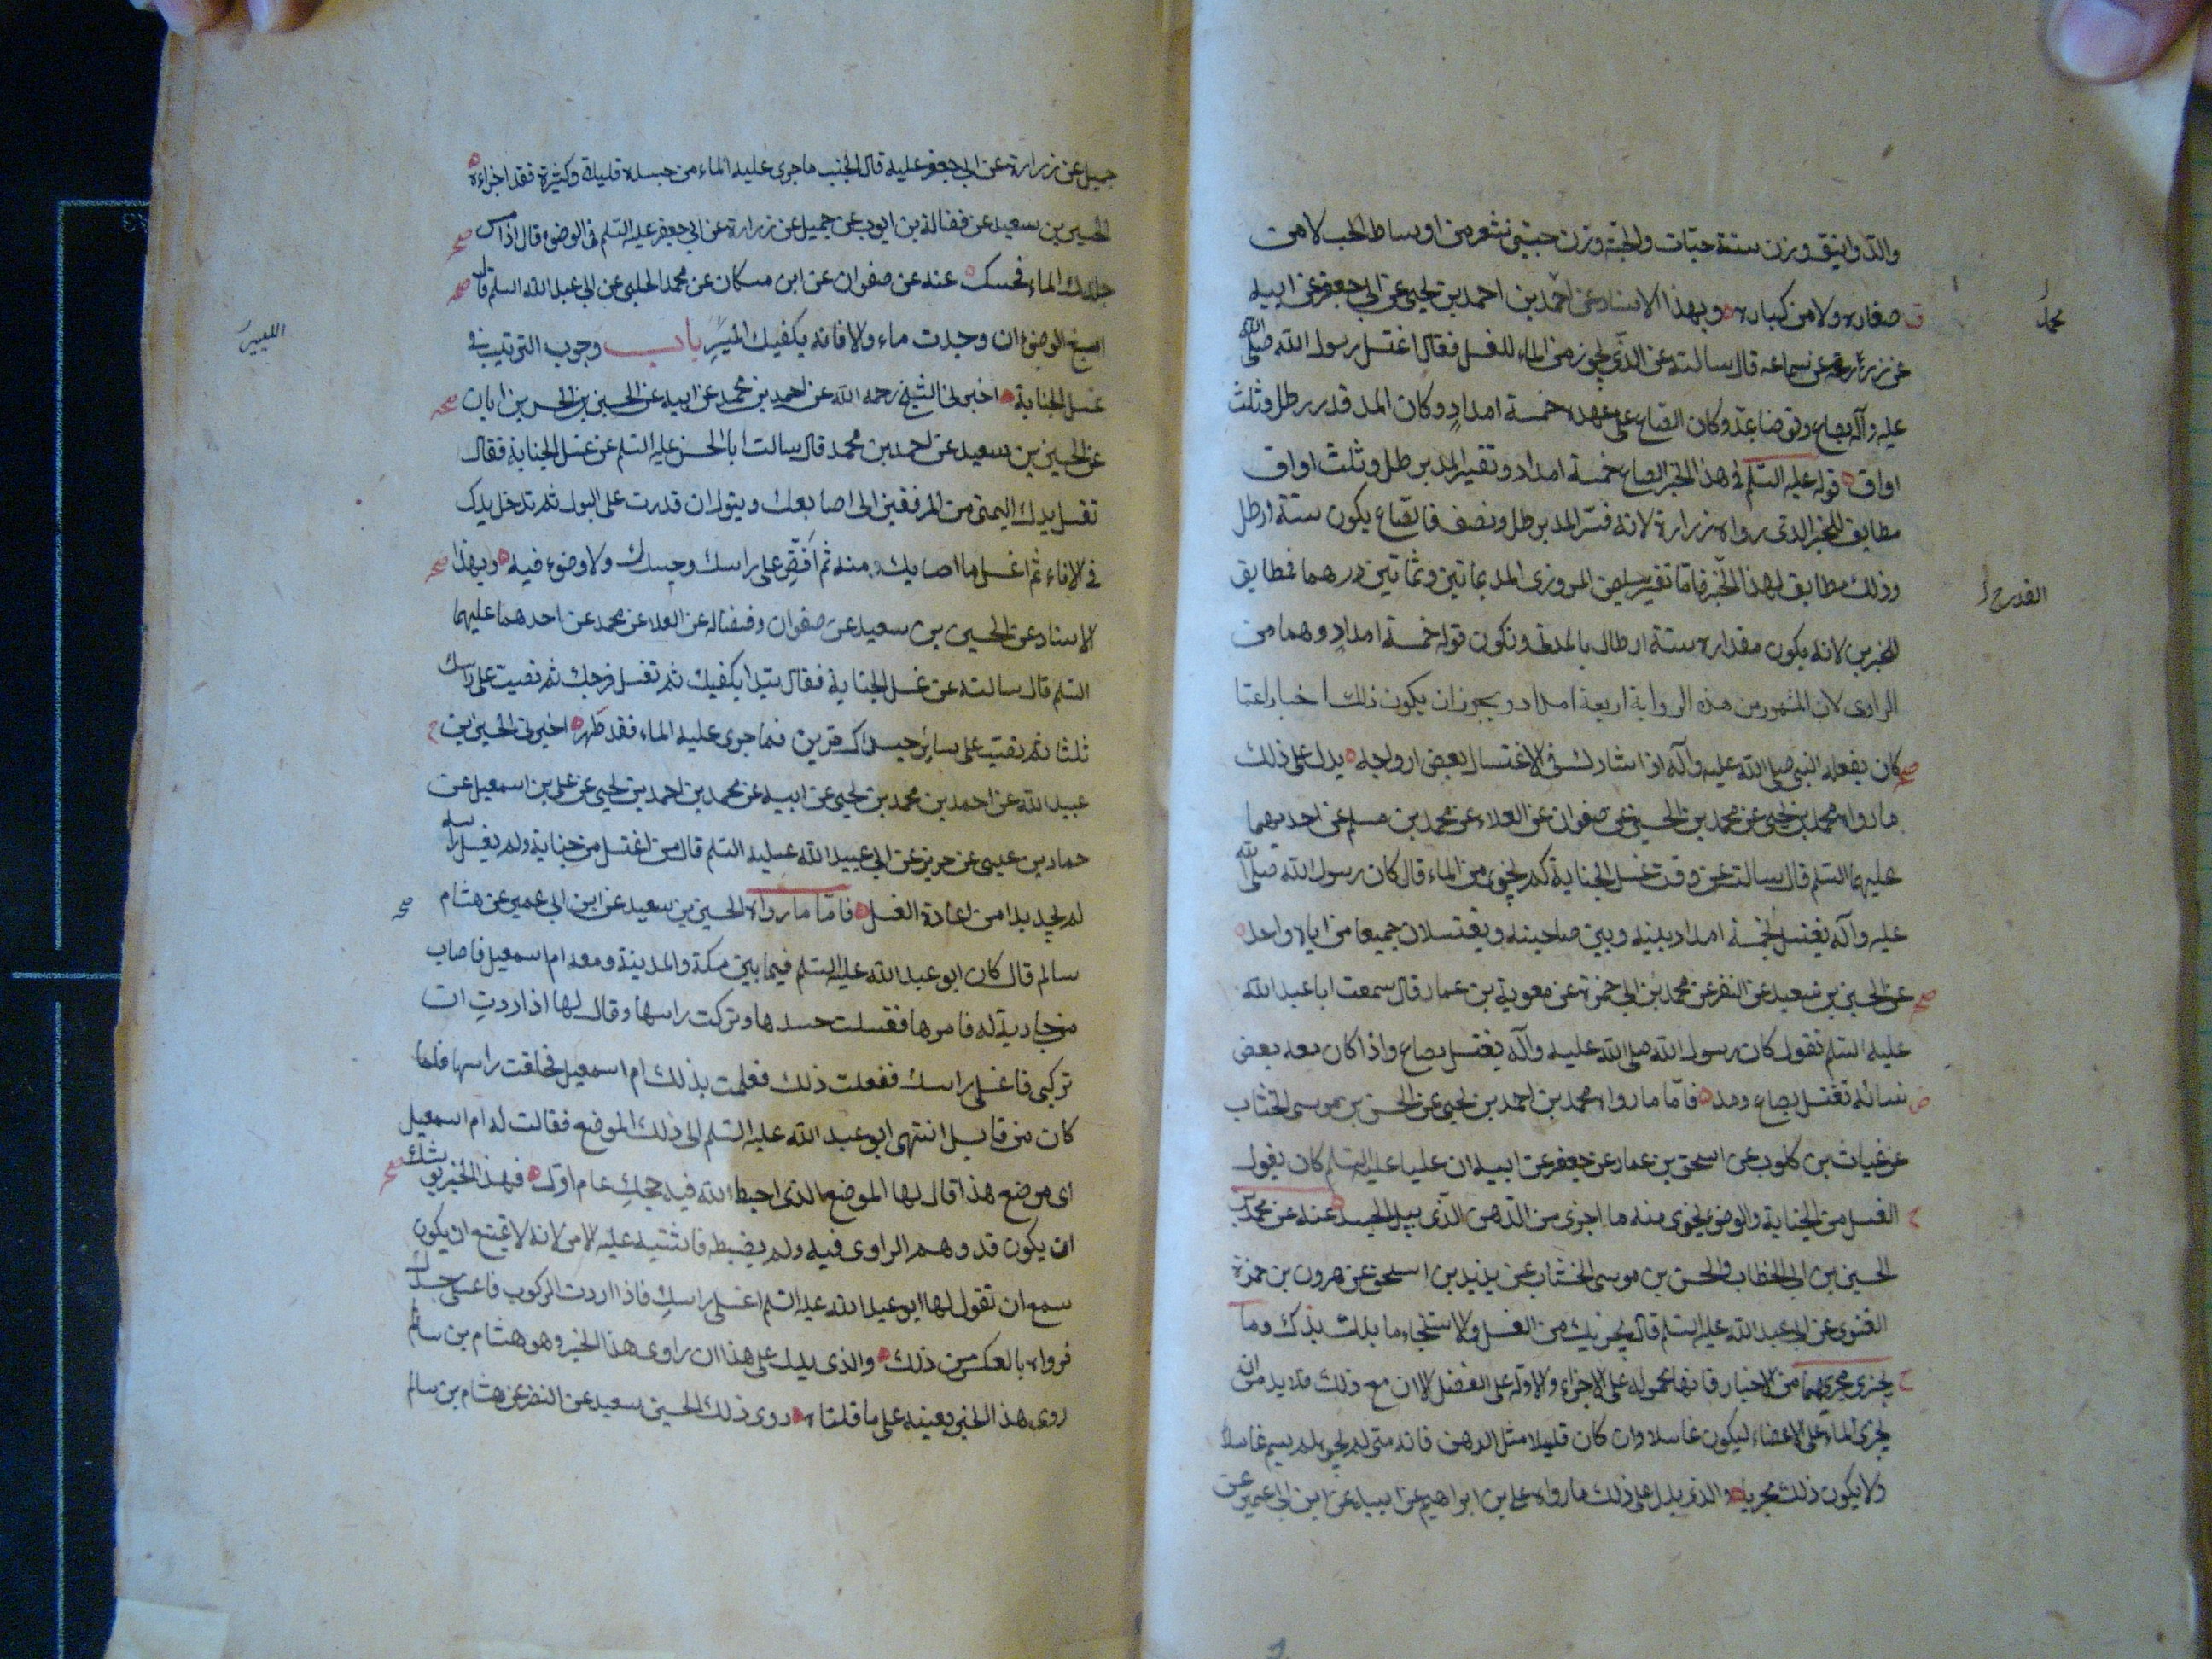 والدوانيق وزن ستة حبات والحبة وزن حبتي شعير من اوساط الحب لا من
صغاره ولا من كباره وبهذا الاسناد عن احمد بن احمد بن يحيى عن ابي جعفر عن ابيه
محمد
عن زرعة عن سماعه قال سالته عن الذي يجزى من الماء للغسل فقال اغتسل رسول الله صلى الله
عليه وآله بصاع وتوضا بمد وكان الصاع على عهده خمسة امداد وكان المد قدر رطل وثلث
اواق قوله عليه السلم في هذا الخبر الصاع خمسة امداد وتفسير المد برطل وثلث اواق
مطابق للخبر الذي رواه زرارة لانه فسر المد برطل ونصف فالصاع يكون ستة ارطل
وذلك مطابق لهذا الخبر فاما تفسير سليمن المروزى المد بماتين وثمانين درهما فمطابق
للخبرين لانه يكون مقداره ستة ارطال بالمدني ويكون قوله خمسة امداد وهما من
الراوى لان المشهور من هذه الرواية اربعة امداد ويجوز ان يكون ذلك اخبارا عما
كان يفعله النبي صلى الله عليه وآله اذا شارك في الاغتسال بعض ازواجه يدل على ذلك
ما رواه محمد بن يحيى عن محمد بن الحسين عن صفوان عن العلاء عن محمد بن مسلم عن احدهما
عليهما السلم قال سالته عن وقت غسل الجنابة كم يجزى من الماء قال كان رسول الله صلى الله
عليه وآله يغتسل بخمسة امداد بينه وبين صاحبته ويغتسلان جميعا من اناء واحد
عن الحسين بن سعيد عن النضر عن محمد بن ابي حمزة عن معوية بن عمار قال سمعت ابا عبد الله
عليه السلم يقول كان رسول الله صلى الله عليه وآله يغتسل بصاع واذا كان معه بعض
نسائه يغتسل بصاع ومد فاما ما رواه محمد بن احمد بن يحيى عن الحسن بن موسى الخشاب
عن غياث بن كلوب عن اسحق بن عمار عن جعفر عن ابيه ان عليا عليه السلم كان يقول
الغسل من الجنابة والوضوء يجزى منه ما اجزى من الدهن الذي يبل الجسد عنه عن محمد بن
الحسين بن ابي الخطاب والحسن بن موسى الخشاب عن يزيد بن اسحق عن هرون بن حمزة
الغنوى عن ابي عبد الله عليه السلم قال يجزيك من الغسل والاستنجاء ما بللت يدك وما
يجرى مجريهما من الاخبار فانها محمولة على الاجزاء والاولة على الفضل الا ان مع ذلك فلا بد من ان
يجرى الماء على الاعضاء ليكون غاسلا وان كان قليلا مثل الدهن فانه متى لم يجر لم يسم غاسلا
ولا يكون ذلك مجزيا والذى يدل على ذلك ما رواه على بن ابراهيم عن ابيه عن ابن ابي عمير عن
جميل عن زرارة عن ابي جعفر عليه قال الجنب ما جرى عليه الماء من جسده قليله وكثيرة فقد اجزاءه
الحسين بن سعيد عن فضالة بن ايوب عن جميل عن زرارة عن ابي جعفر عليه السلم في الوضوء قال اذا مس
جلدك الماء فحسبك عنه عن صفوان عن ابن مسكان عن محمد الحلبي عن ابي عبد الله السلم قال
اسبغ الوضوء ان وجدت ماء والا فانه يكفيك اليسير باب وجوب الترتيب في
غسل الجنابة اخبرني الشيخ رحمه الله عن احمد بن محمد عن ابيه عن الحسين بن الحسن بن ابان
عن الحسين بن سعيد عن احمد بن محمد قال سالت ابا الحسن عليه السلم عن غسل الجنابة فقال
تغسل يدك اليمنى من المرفقين الى اصابعك وتبول ان قدرت على البول ثم تدخل يدك
في الاناء ثم اغسل ما اصابك منه ثم افض على راسك وجسدك ولا وضوء فيه وبهذا
الاسناد عن الحسين بن سعيد عن صفوان وفضاله عن العلا عن محمد عن احدهما عليهما
السلم قال سالته عن غسل الجنابة فقال تبدا بكفيك ثم تغسل فرجك ثم تصب على راسك
ثلثا ثم تصب على سائر جسدك مرتين فما جرى عليه الماء فقد طهر اخبرني الحسين بن
عبيد الله عن احمد بن محمد بن يحيى عن ابيه عن محمد بن احمد بن يحيى عن على بن اسمعيل عن
حماد بن عيسى عن حريز عن ابي عبد الله عليه السلم قال من اغتسل من جنابة ولم يغسل راسه
لم يجد بدا من اعادة الغسل فاما ما رواه الحسين بن سعيد عن ابن ابي عمير عن هشام
سالم قال كان ابو عبد الله عليه السلم فيما بين مكة والمدينة ومعه ام اسمعيل فاصاب
من جارية له فامرها فغسلت جسدها وتركت راسها وقال لها اذا اردت ان
تركبى فاغسلى راسك ففعلت ذلك فعلمت بذلك ام اسمعيل فحلقت راسها فلما
كان من قابل انتهى ابو عبد الله عليه السلم الى ذلك الموضع فقالت له ام اسمعيل
اى موضع هذا قال لها الموضع الذى احبط الله فيه حجك عام اول فهذا الخبر يوشك
ان يكون قد وهم الراوى فيه ولم يضبطه فاشتبه عليه الامر لانه لا يمتنع ان يكون
سمع ان يقول لها ابو عبد الله عليه السلم اغسلى راسك فاذا اردت الركوب فاغسلى جسدك
فرواه بالعكس من ذلك والذى يدل على هذا ان راوى هذا الخبر وهو هشام بن سالم
روى هذا الخبر بعينه على ما قلناه روى ذلك الحسين سعيد عن النضر عن هشام بن سالم